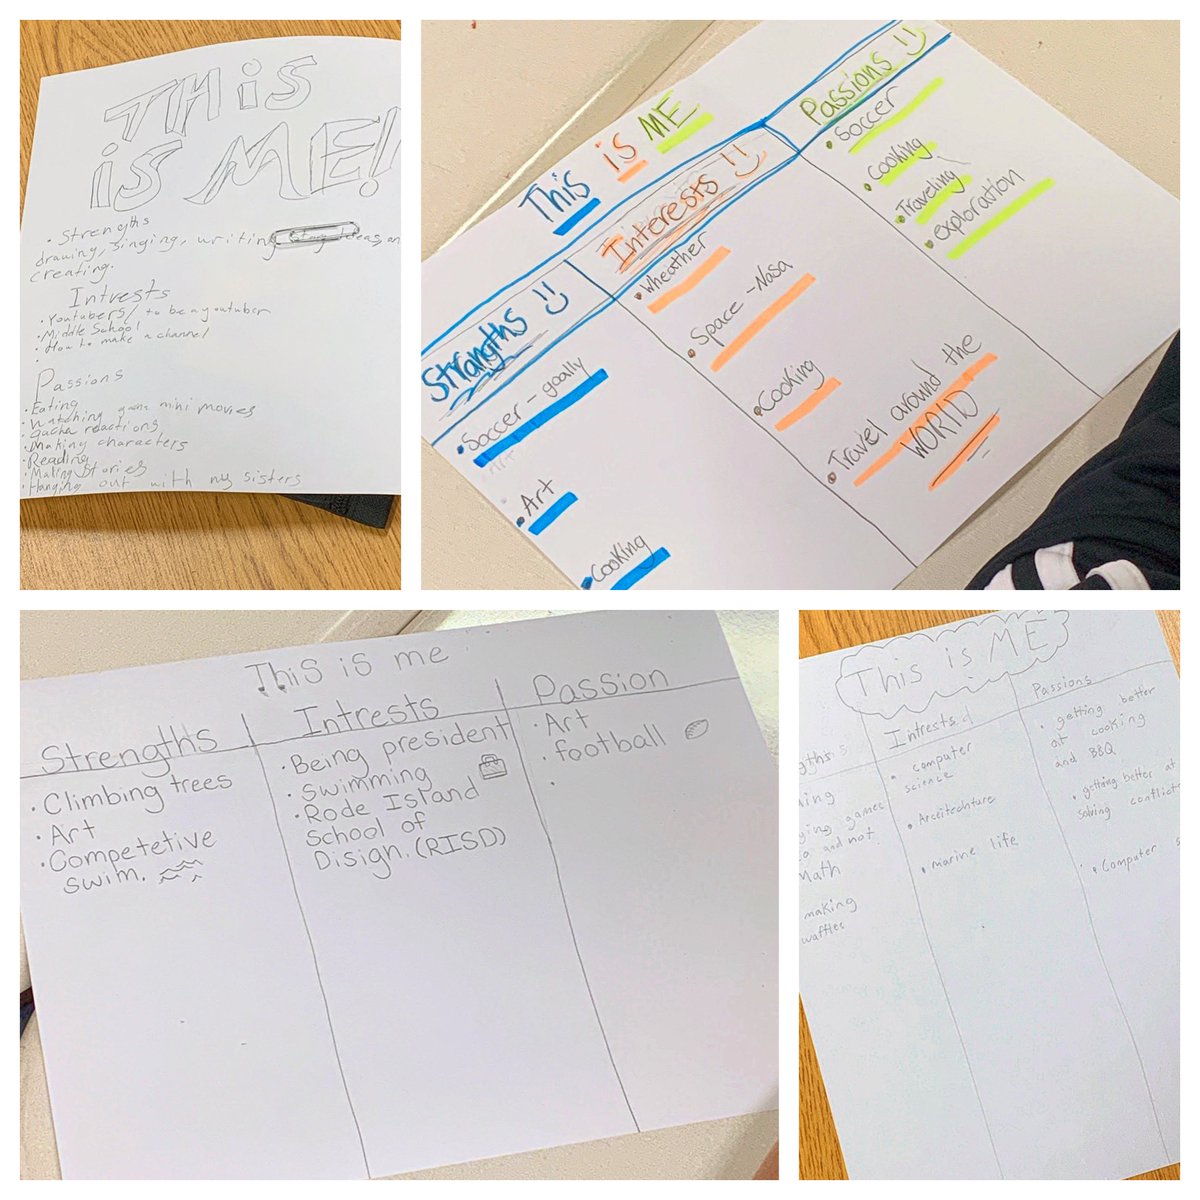 THiS
iS ME!
• Strengths
drawing, singing, writing ideas, an
creating.
Intrests
• Youtubers/ to be a youtuber
• Middle School
• How to make a channel
•
Passions
• Eating
• Watching mini movies
• gacha reactions
• Making characters
• Reading
• Making Stories
• Hanging out with my sisters
This is ME
Strangths
• Soccer - goally
• Art
• Cooking
Interests
• Wheather
• Space - Nasa
• Cooking
• Travel around the
WORLD
Passions
• Soccer
• Cooking
• Traveling
• exploration
This is me
Strengths
• Climbing trees
• Art
• Competetive
swim.
Intrests
• Being president
• swimming
• Rode Island
School of
Disign. (RISD)
Passion
• Art
• football
•
This is ME
gths
ing
ying games
a and not
Math
making
waffles
Intrested
• computer
science
• Arceitechture
• marine life
Passions
• getting better
at cooking
and BBQ
• getting better at
solving conflict
• Computer s